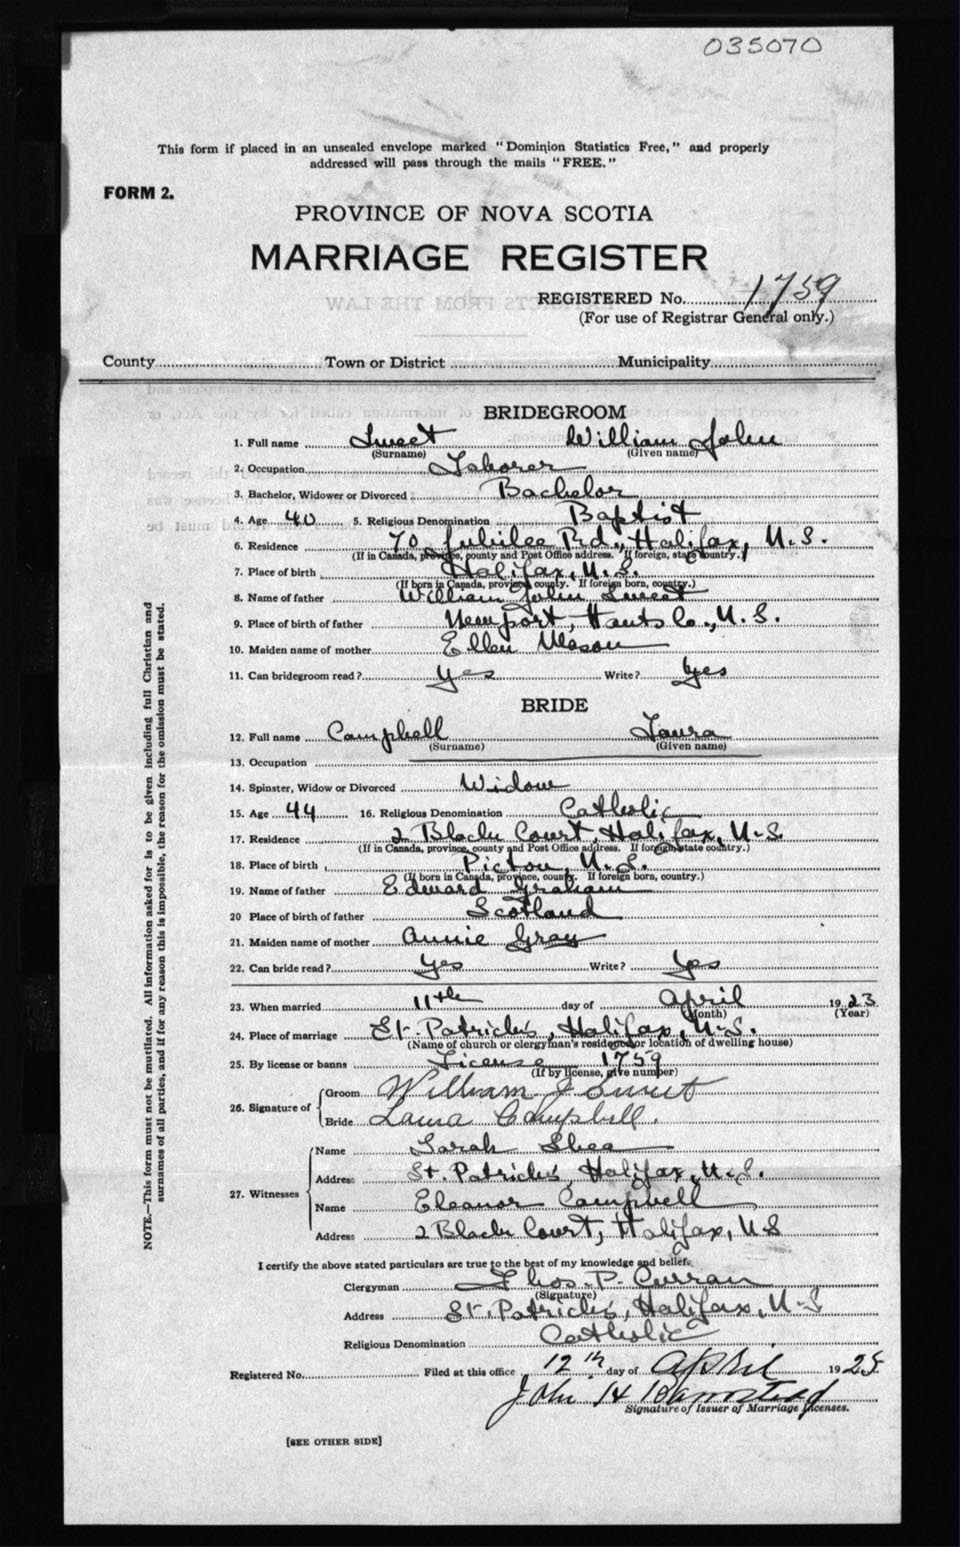 035070
This form if placed in an unsealed envelope marked "Dominion Statistics Free," and properly
addressed will pass through the mails "FREE."
FORM 2.
PROVINCE OF NOVA SCOTIA
MARRIAGE REGISTER
REGISTERED No. 1759
(For use of Registrar General only.)
County Town or District Municipality
BRIDEGROOM
1. Full name Sweet William John
(Surname) (Given name)
2. Occupation Laborer
3. Bachelor, Widower or Divorced Bachelor
4. Age 40 5. Religious Denomination Baptist
6. Residence 70 Jubilee Rd., Halifax, N.S.
(If in Canada, province, county and Post Office address. If foreign, state country.)
7. Place of birth Halifax, N.S.
(If born in Canada, province, county. If foreign born, country.)
8. Name of father William John Sweet
9. Place of birth of father Newport, Hants Co., N.S.
10. Maiden name of mother Ellen Mason
11. Can bridegroom read? Yes Write? Yes
BRIDE
12. Full name Campbell Laura
(Surname) (Given name)
13. Occupation
14. Spinster, Widow or Divorced Widow
15. Age 44 16. Religious Denomination Catholic
17. Residence 2 Court, Halifax, N.S.
(If in Canada, province, county and Post Office address. If foreign, state country.)
18. Place of birth Pictou, N.S.
(If born in Canada, province, county. If foreign born, country.)
19. Name of father Edward Graham
20 Place of birth of father Scotland
21. Maiden name of mother Annie Gray
22. Can bride read? Yes Write? Yes
23. When married 11th day of April 1923
(Month) (Year)
24. Place of marriage St. Patrick's, Halifax, N.S.
(Name of church or clergyman's residence or location of dwelling house)
25. By license or banns License 1759
(If by license, give number)
26. Signature of Groom William J Sweet
Bride Laura Campbell.
27. Witnesses Name Sarah Shea
Address St. Patrick's, Halifax, N.S.
Name Eleanor Campbell
Address 2 Court, Halifax, N.S
I certify the above stated particulars are true to the best of my knowledge and belief.
Clergyman Thos. P. Curran
(Signature)
Address St. Patrick's, Halifax, N.S
Religious Denomination Catholic
Registered No. Filed at this office 12th day of April 19
John H
Signature of Issuer of Marriage Licenses.
[SEE OTHER SIDE]
NOTE.—This form must not be mutilated. All information asked for is to be given including full Christian and
surnames of all parties, and if for any reason this is impossible, the reason for the omission must be stated.